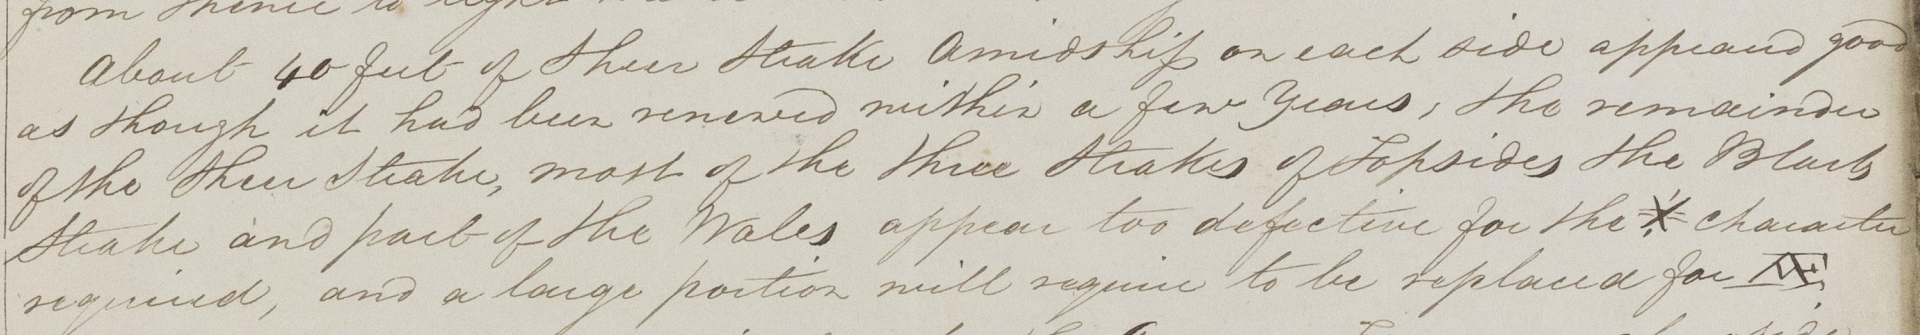 from thence to light
About 40 feet of Sheer Strake Amidships on each side appeared good
as though it had been renewed within a few Years, the remainder
of the Sheer Strake, most of the three Strakes of Topsides the Black
Strake and part of the Wales appear too defective for the character
required, and a large portion will require to be replaced for